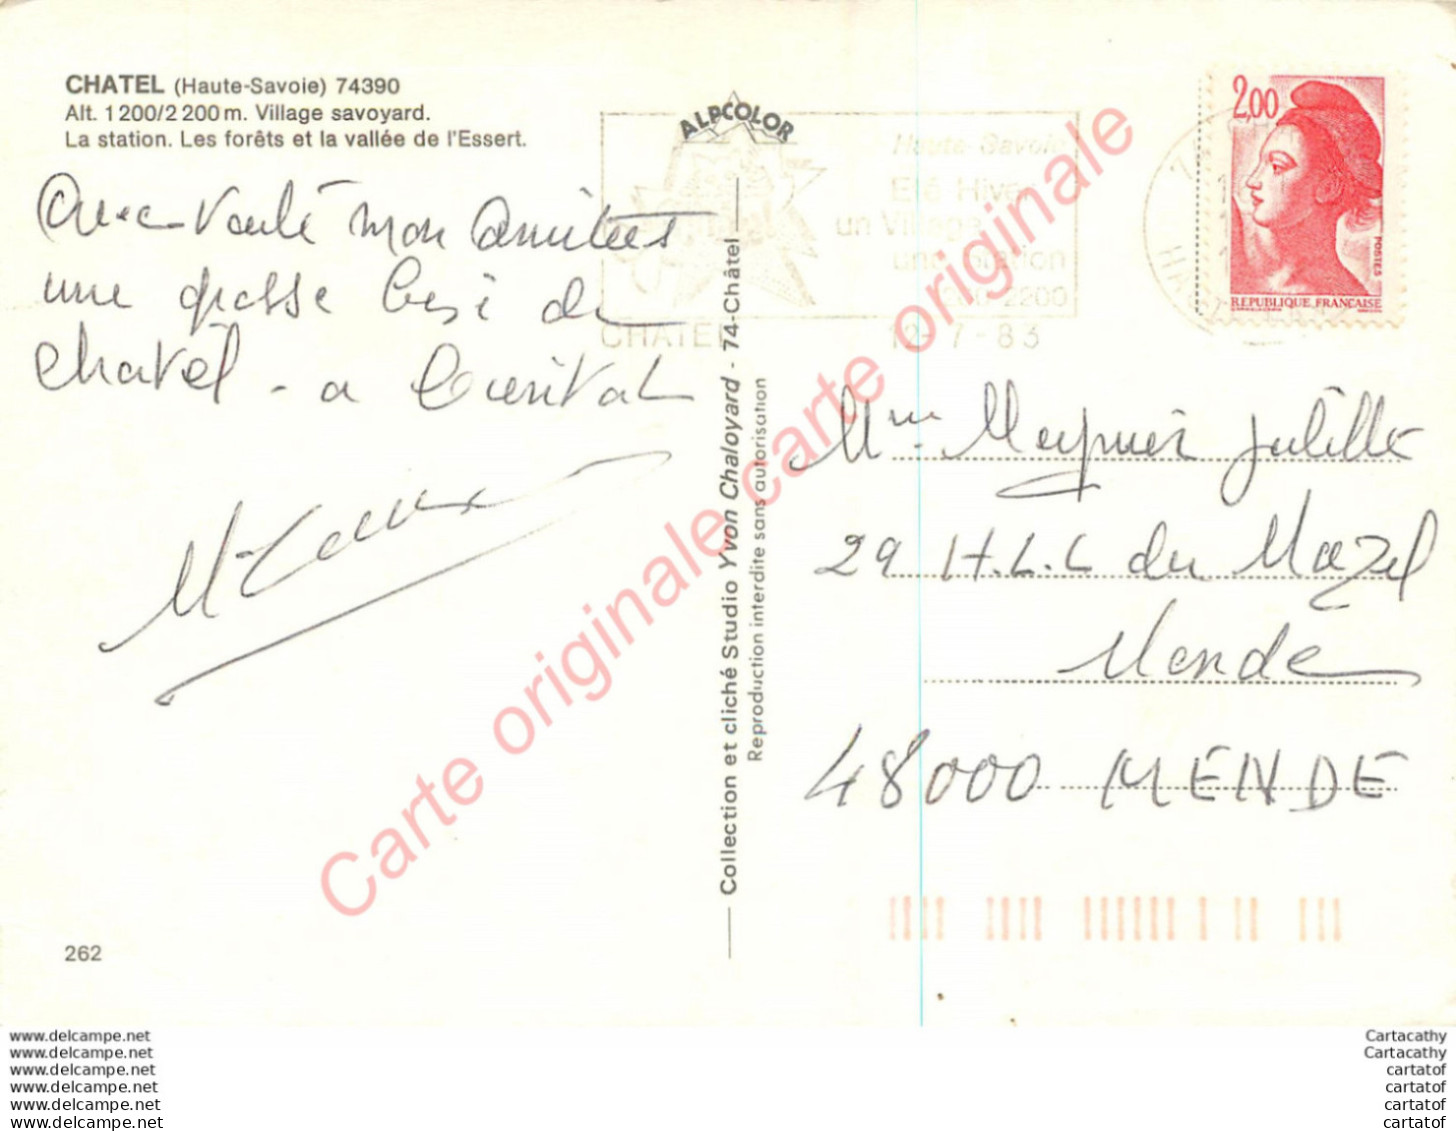 CHATEL (Haute-Savoie) 74390
Alt. 1 200/2 200 m. Village savoyard.
La station. Les forêts et la vallée de l'Essert.
ALPCOLOR
Haute-Savoie
Eté Hiver
un Village
une Station
2200
CHATEL 12-7-83
2,00
POSTES
REPUBLIQUE FRANÇAISE
mon
une grosse de
chatel - a
Collection et cliché Studio Yvon Chaloyard - 74-Châtel
Reproduction interdite sans autorisation
Mme Meynier
29 H.L.L du Mazel
Mende
48000 MENDE
262
Carte originale carte originale
www.delcampe.net
www.delcampe.net
www.delcampe.net
www.delcampe.net
www.delcampe.net
www.delcampe.net
Cartacathy
Cartacathy
cartatof
cartatof
cartatof
cartatof